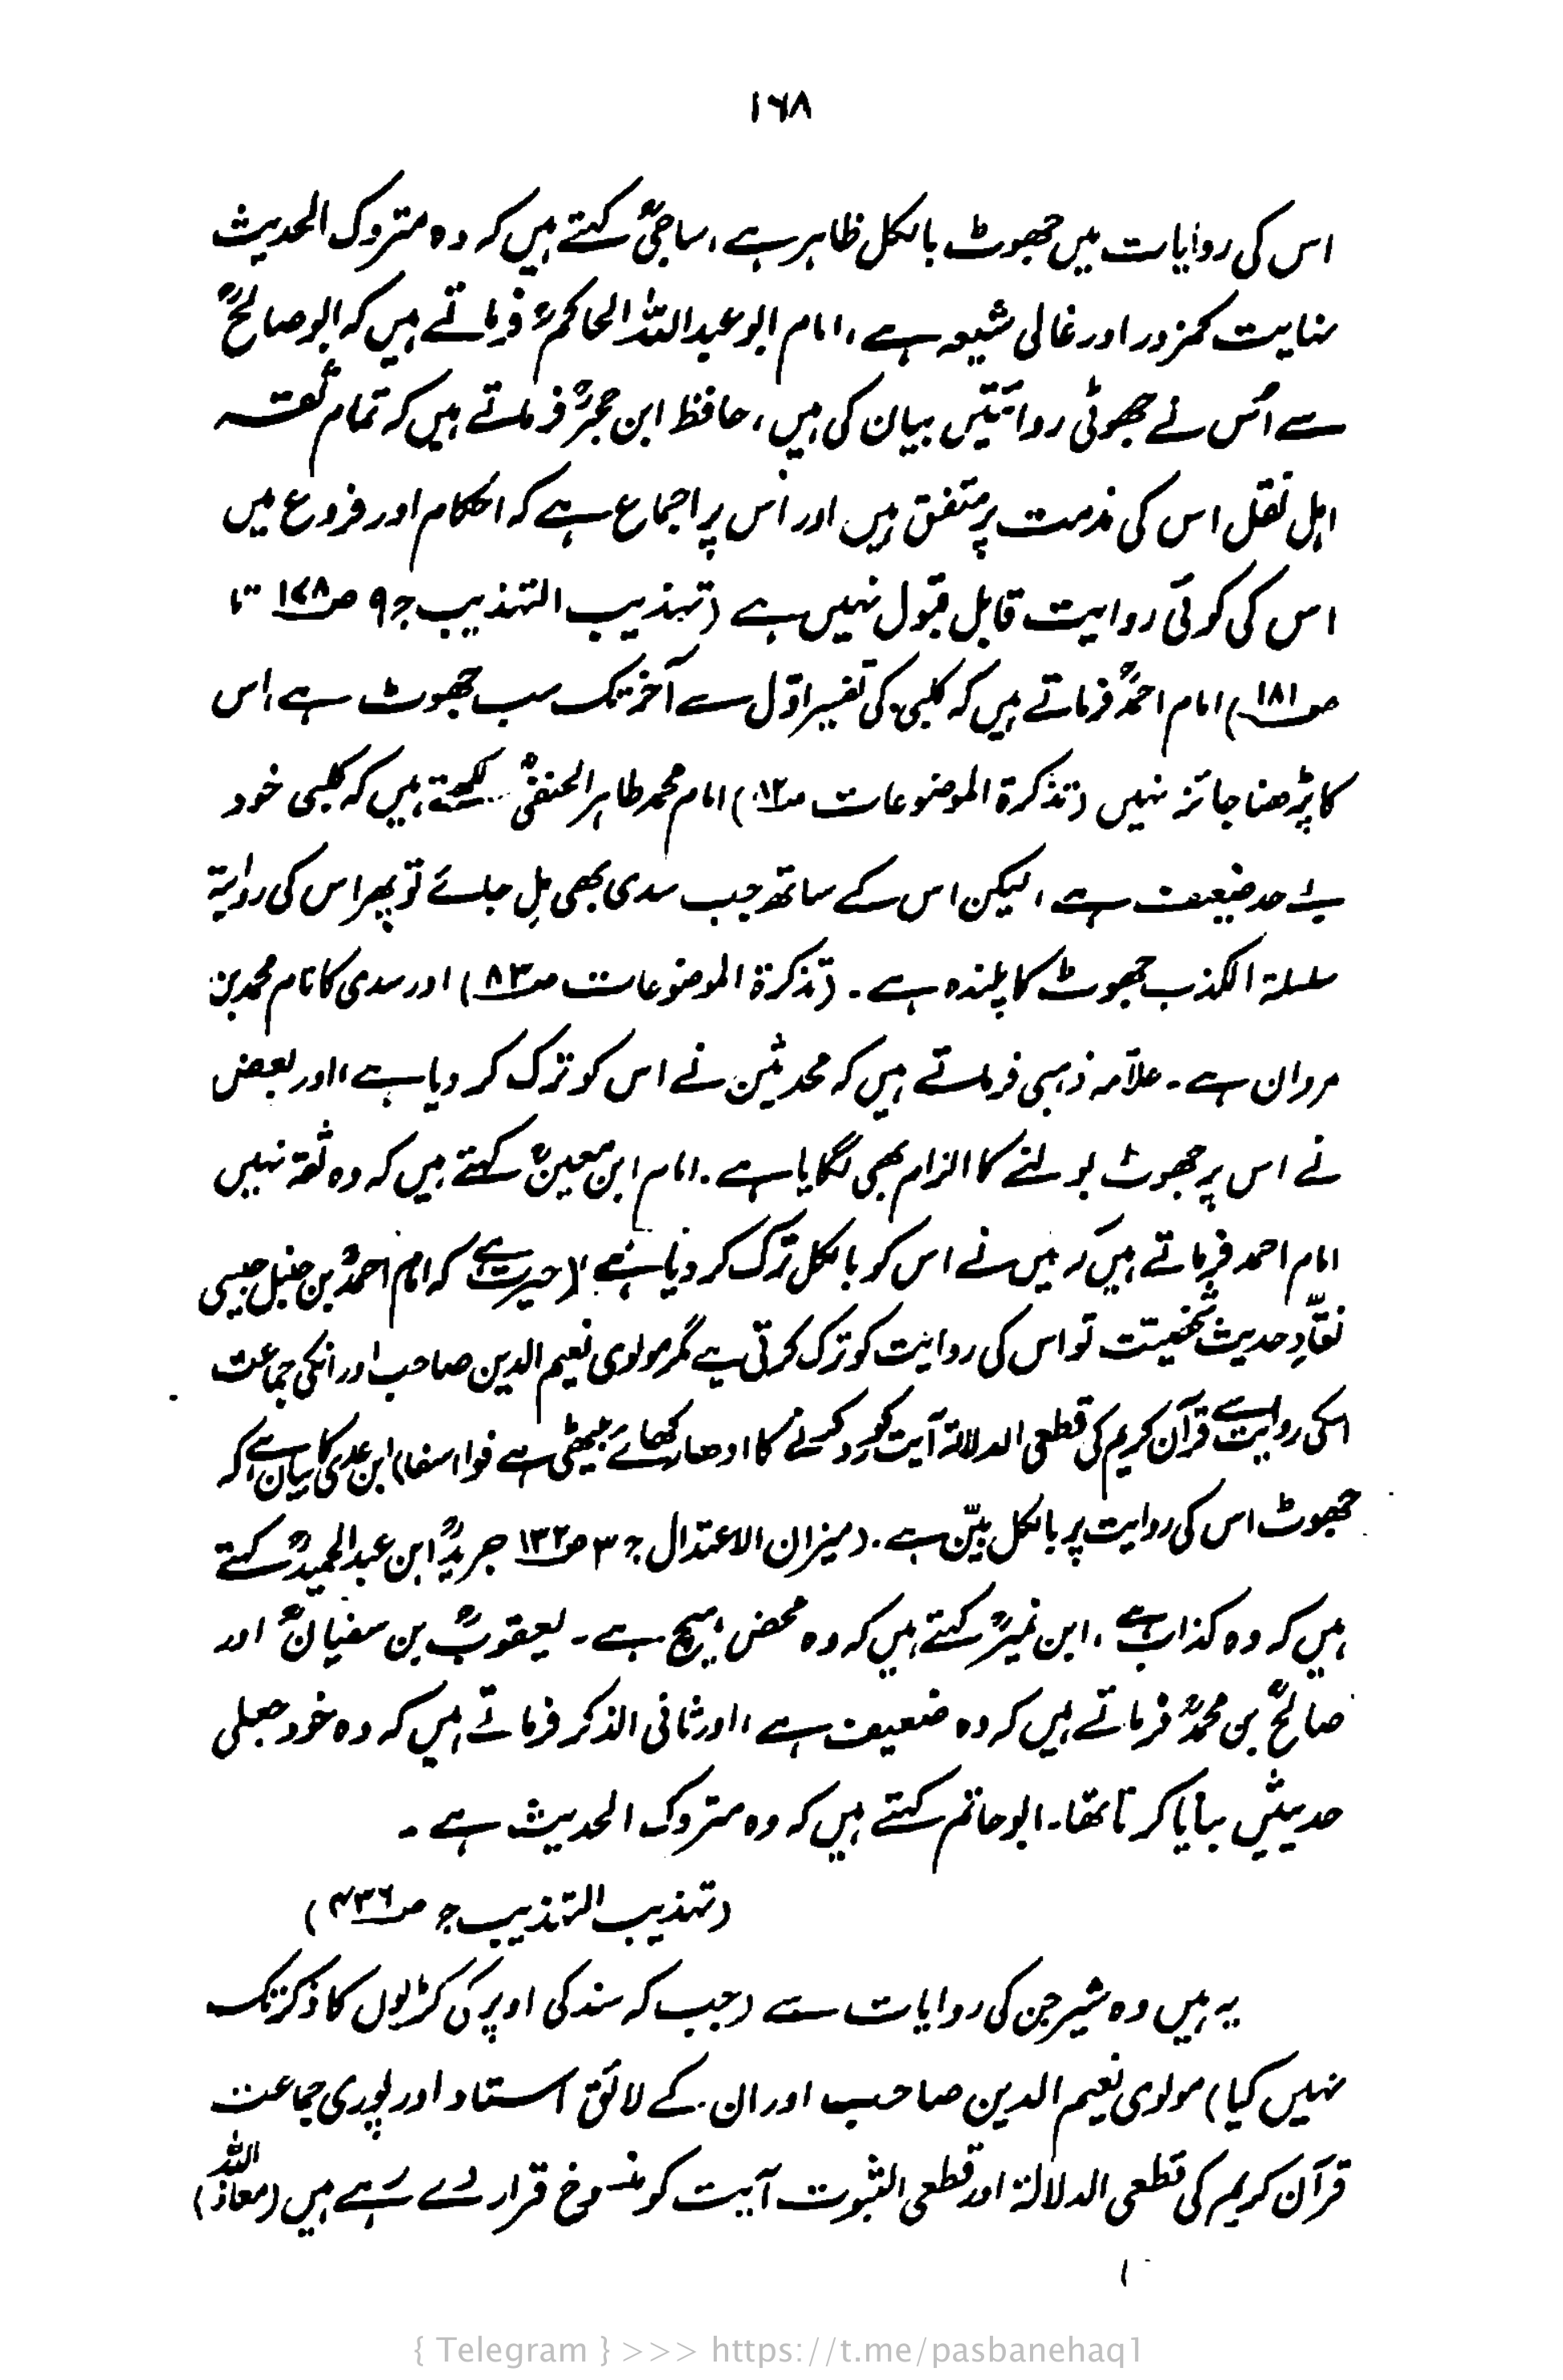 ۱۶۸
اس کی روایات میں جھوٹ بالکل ظاہر ہے، ساجیؒ کہتے ہیں کہ وہ متروک الحدیث
نہایت کمزور اور غالی شیعہ ہے، امام ابو عبداللہ الحاکمؒ فرماتے ہیں کہ ابو صالحؒ
سے اُس نے جھوٹی روائتیں بیان کی ہیں، حافظ ابن حجرؒ فرماتے ہیں کہ تمام ثقہ
اہل نقل اس کی مذمت پر متفق ہیں اور اس پر اجماع ہے کہ احکام اور فروع میں
اس کی کوئی روایت قابل قبول نہیں ہے (تہذیب التہذیب ج۹ ص۱۷۸ تا
ص۱۸۱) امام احمدؒ فرماتے ہیں کہ کلبی کی تفسیر اوّل سے آخر تک سب جھوٹ ہے اس
کا پڑھنا جائز نہیں (تذکرۃ الموضوعات ص۸۲) امام محمد طاہر الحنفیؒ لکھتے ہیں کہ کلبی خود
بے حد ضعیف ہے، لیکن اس کے ساتھ جب سدی بھی مِل جائے تو پھر اس کی روایۃ
سلسلۃ الکذب جھوٹ کا پلندہ ہے۔ (تذکرۃ الموضوعات ص۸۳) اور سدی کا نام محمد بن
مروان ہے۔ علاّمہ ذہبی فرماتے ہیں کہ محدثین نے اس کو ترک کر دیا ہے، اور بعض
نے اس پر جھوٹ بولنے کا الزام بھی لگایا ہے۔ امام ابن معینؒ کہتے ہیں کہ وہ ثقۃ نہیں
امام احمد فرماتے ہیں کہ میں نے اس کو بالکل ترک کر دیا ہے، (حیرت ہے کہ امام احمدؒ بن حنبل جیسی
نقّادِ حدیث شخصیّت تو اس کی روایت کو ترک کرتی ہے مگر مولوی نعیم الدین صاحب اور انکی جماعت
اسکی روایت سے قرآن کریم کی قطعی الدلالۃ آیت کو رد کرنے کا ادھار کھائے بیٹھی ہے فوا اسفا) ابن عدیؒ کا بیان ہے کہ
جھوٹ اس کی روایت پر بالکل بیّن ہے۔ (میزان الاعتدال ج۳ ص۱۳۲ جریرؒ ابن عبدالحمیدؒ کہتے
ہیں کہ وہ کذاب ہے، ابن نمیرؒ کہتے ہیں کہ وہ محض ہیچ ہے۔ یعقوبؒ بن سفیانؒ اور
صالحؒ بن محمدؒ فرماتے ہیں کہ وہ ضعیف ہے، اور ثانی الذکر فرماتے ہیں کہ وہ خود جعلی
حدیثیں بنایا کرتا تھا۔ ابو حاتم کہتے ہیں کہ وہ متروک الحدیث ہے۔
(تہذیب التہذیب ج ص۴۳۶)
یہ ہیں وہ شیر جن کی روایات سے (جب کہ سند کی اوپر کی کڑیوں کا ذکر تک
نہیں کیا) مولوی نعیم الدین صاحب اور ان کے لائق استاد اور پوری جماعت
قرآن کریم کی قطعی الدلالۃ اور قطعی الثبوت آیت کو منسوخ قرار دے رہے ہیں (معاذ اللہ)
{ Telegram } >>> https://t.me/pasbanehaq1